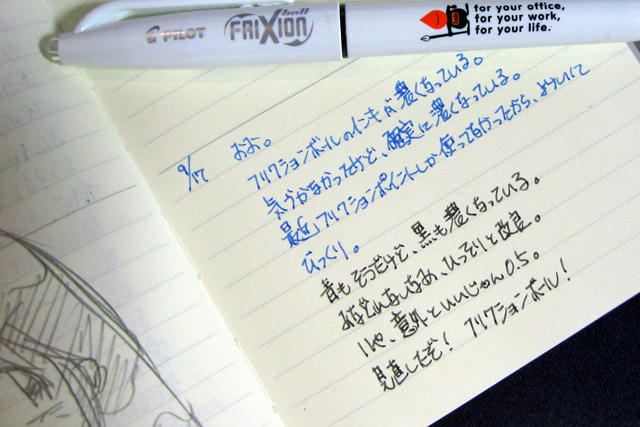 PILOT FRIXION ball
for your office,
for your work,
for your life.
9/17 おお。
フリクションボールのインキが濃くなっている。
気づかなかったけど、確実に濃くなっている。
最近フリクションポイントしか使ってなかったから、よけいに
びっくり。
青もそうだけど、黒も濃くなっている。
ひっそりと改良。
いや、意外といいじゃん0.5。
見直したぞ! フリクションボール!